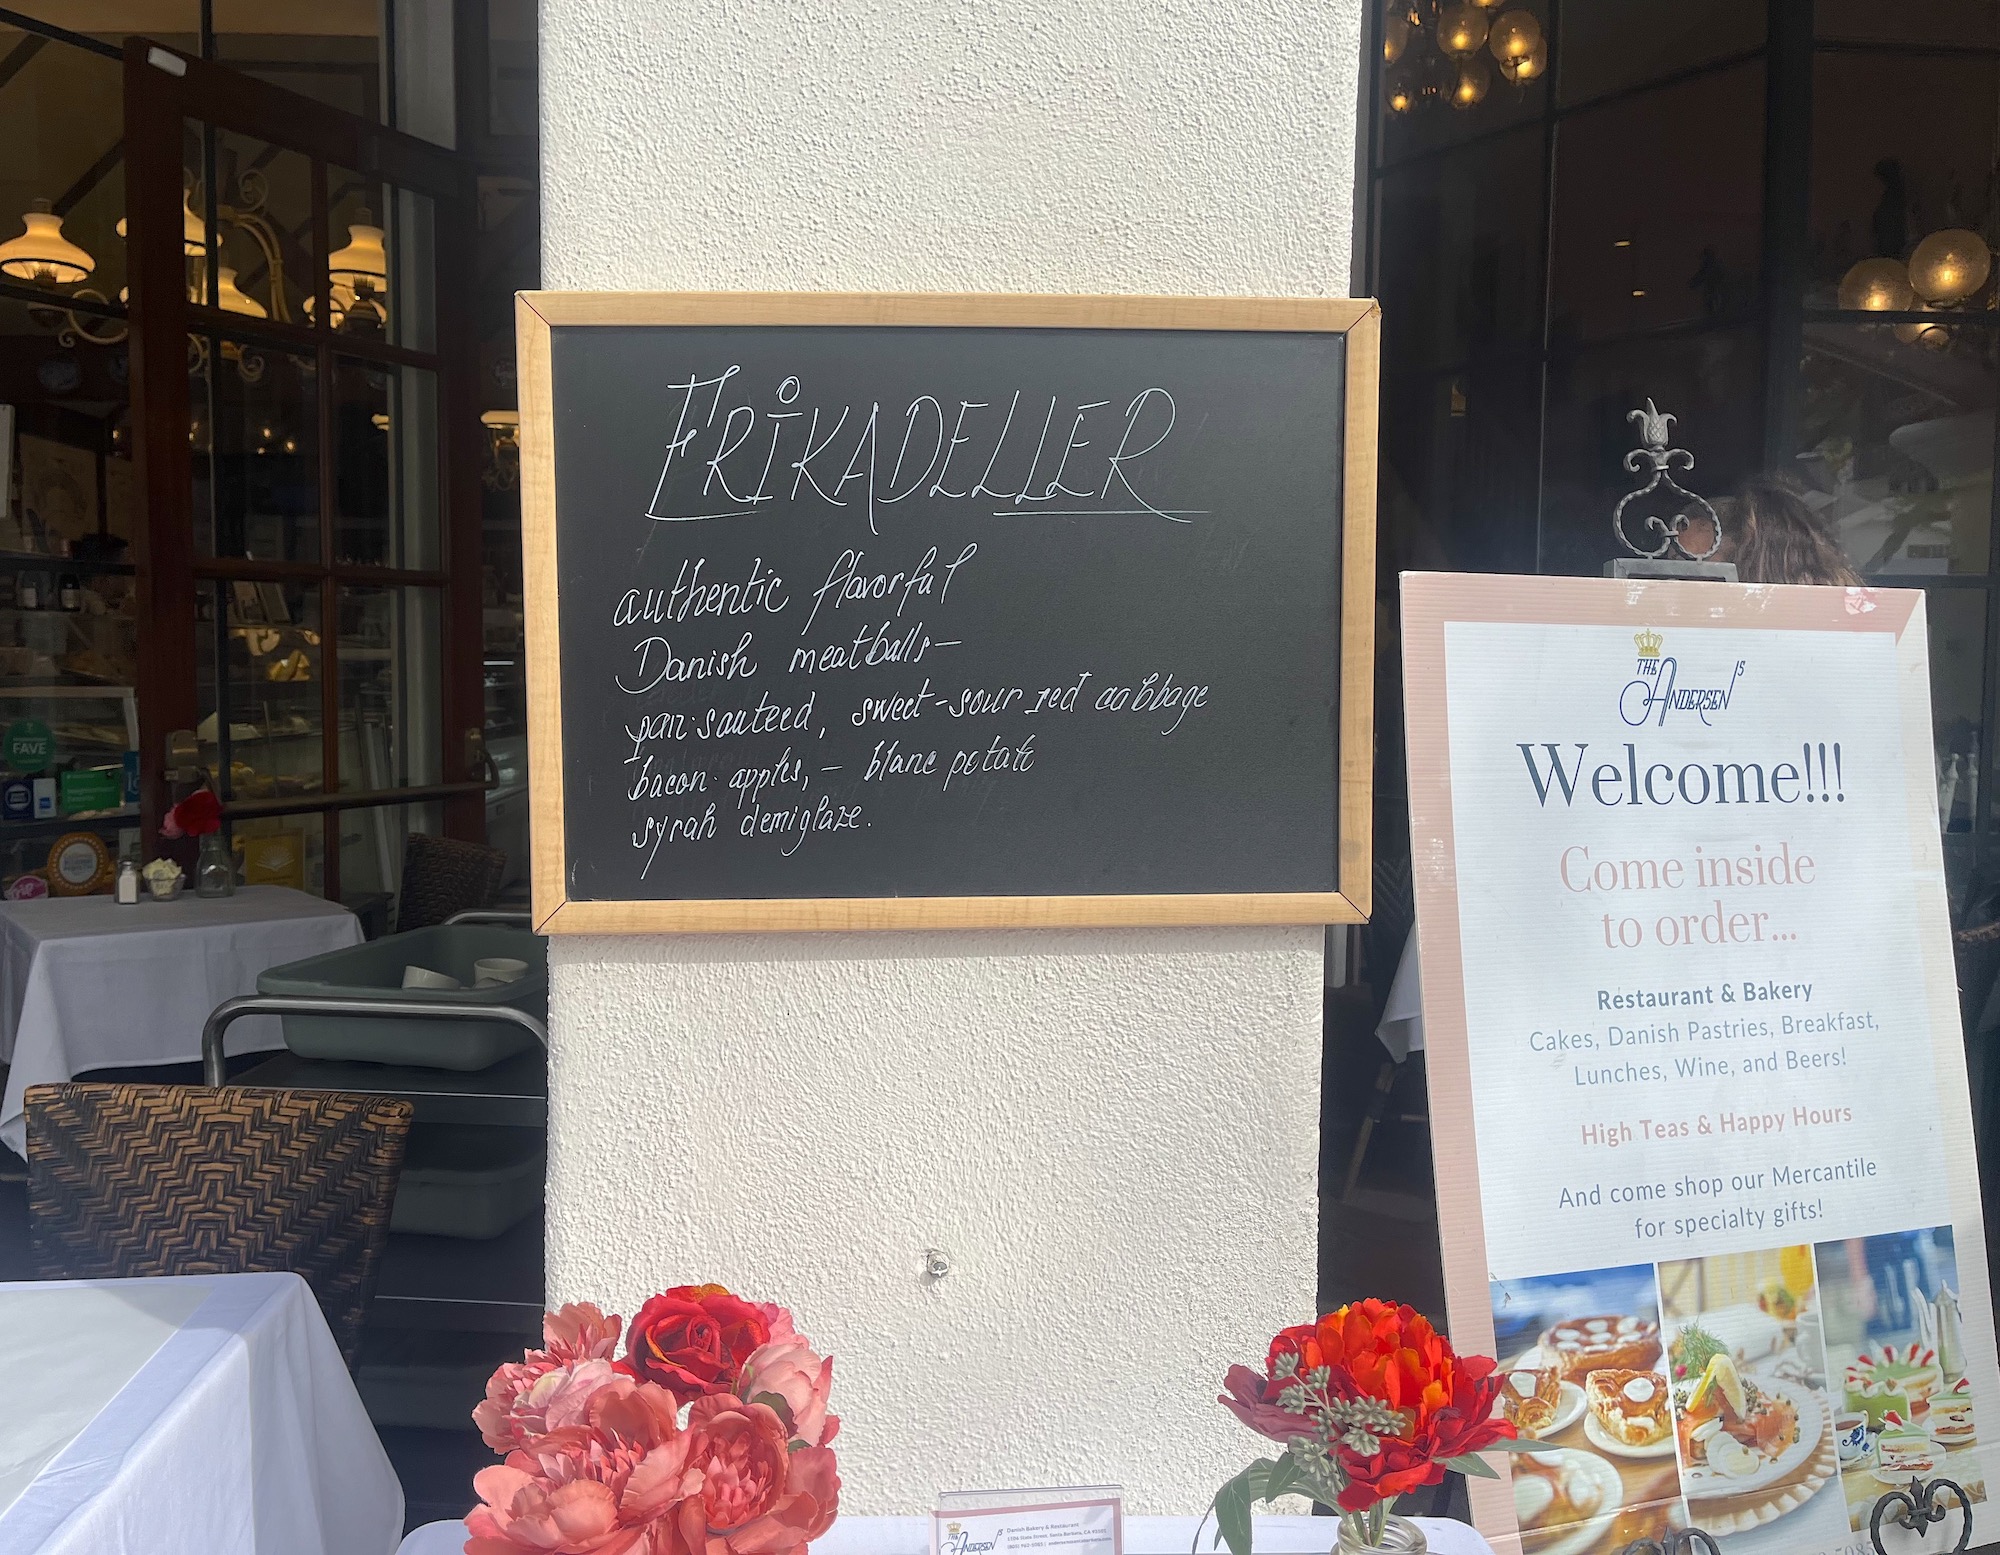 FRIKADELLER
authentic flavorful
Danish meatballs-
pan-sauteed, sweet-sour red cabbage
bacon-apples, - blanc potato
syrah demiglaze.
THE ANDERSEN'S
Welcome!!!
Come inside
to order...
Restaurant & Bakery
Cakes, Danish Pastries, Breakfast,
Lunches, Wine, and Beers!
High Teas & Happy Hours
And come shop our Mercantile
for specialty gifts!
FAVE
THE ANDERSEN'S
Danish Bakery & Restaurant
1106 State Street, Santa Barbara, CA 93101
5085